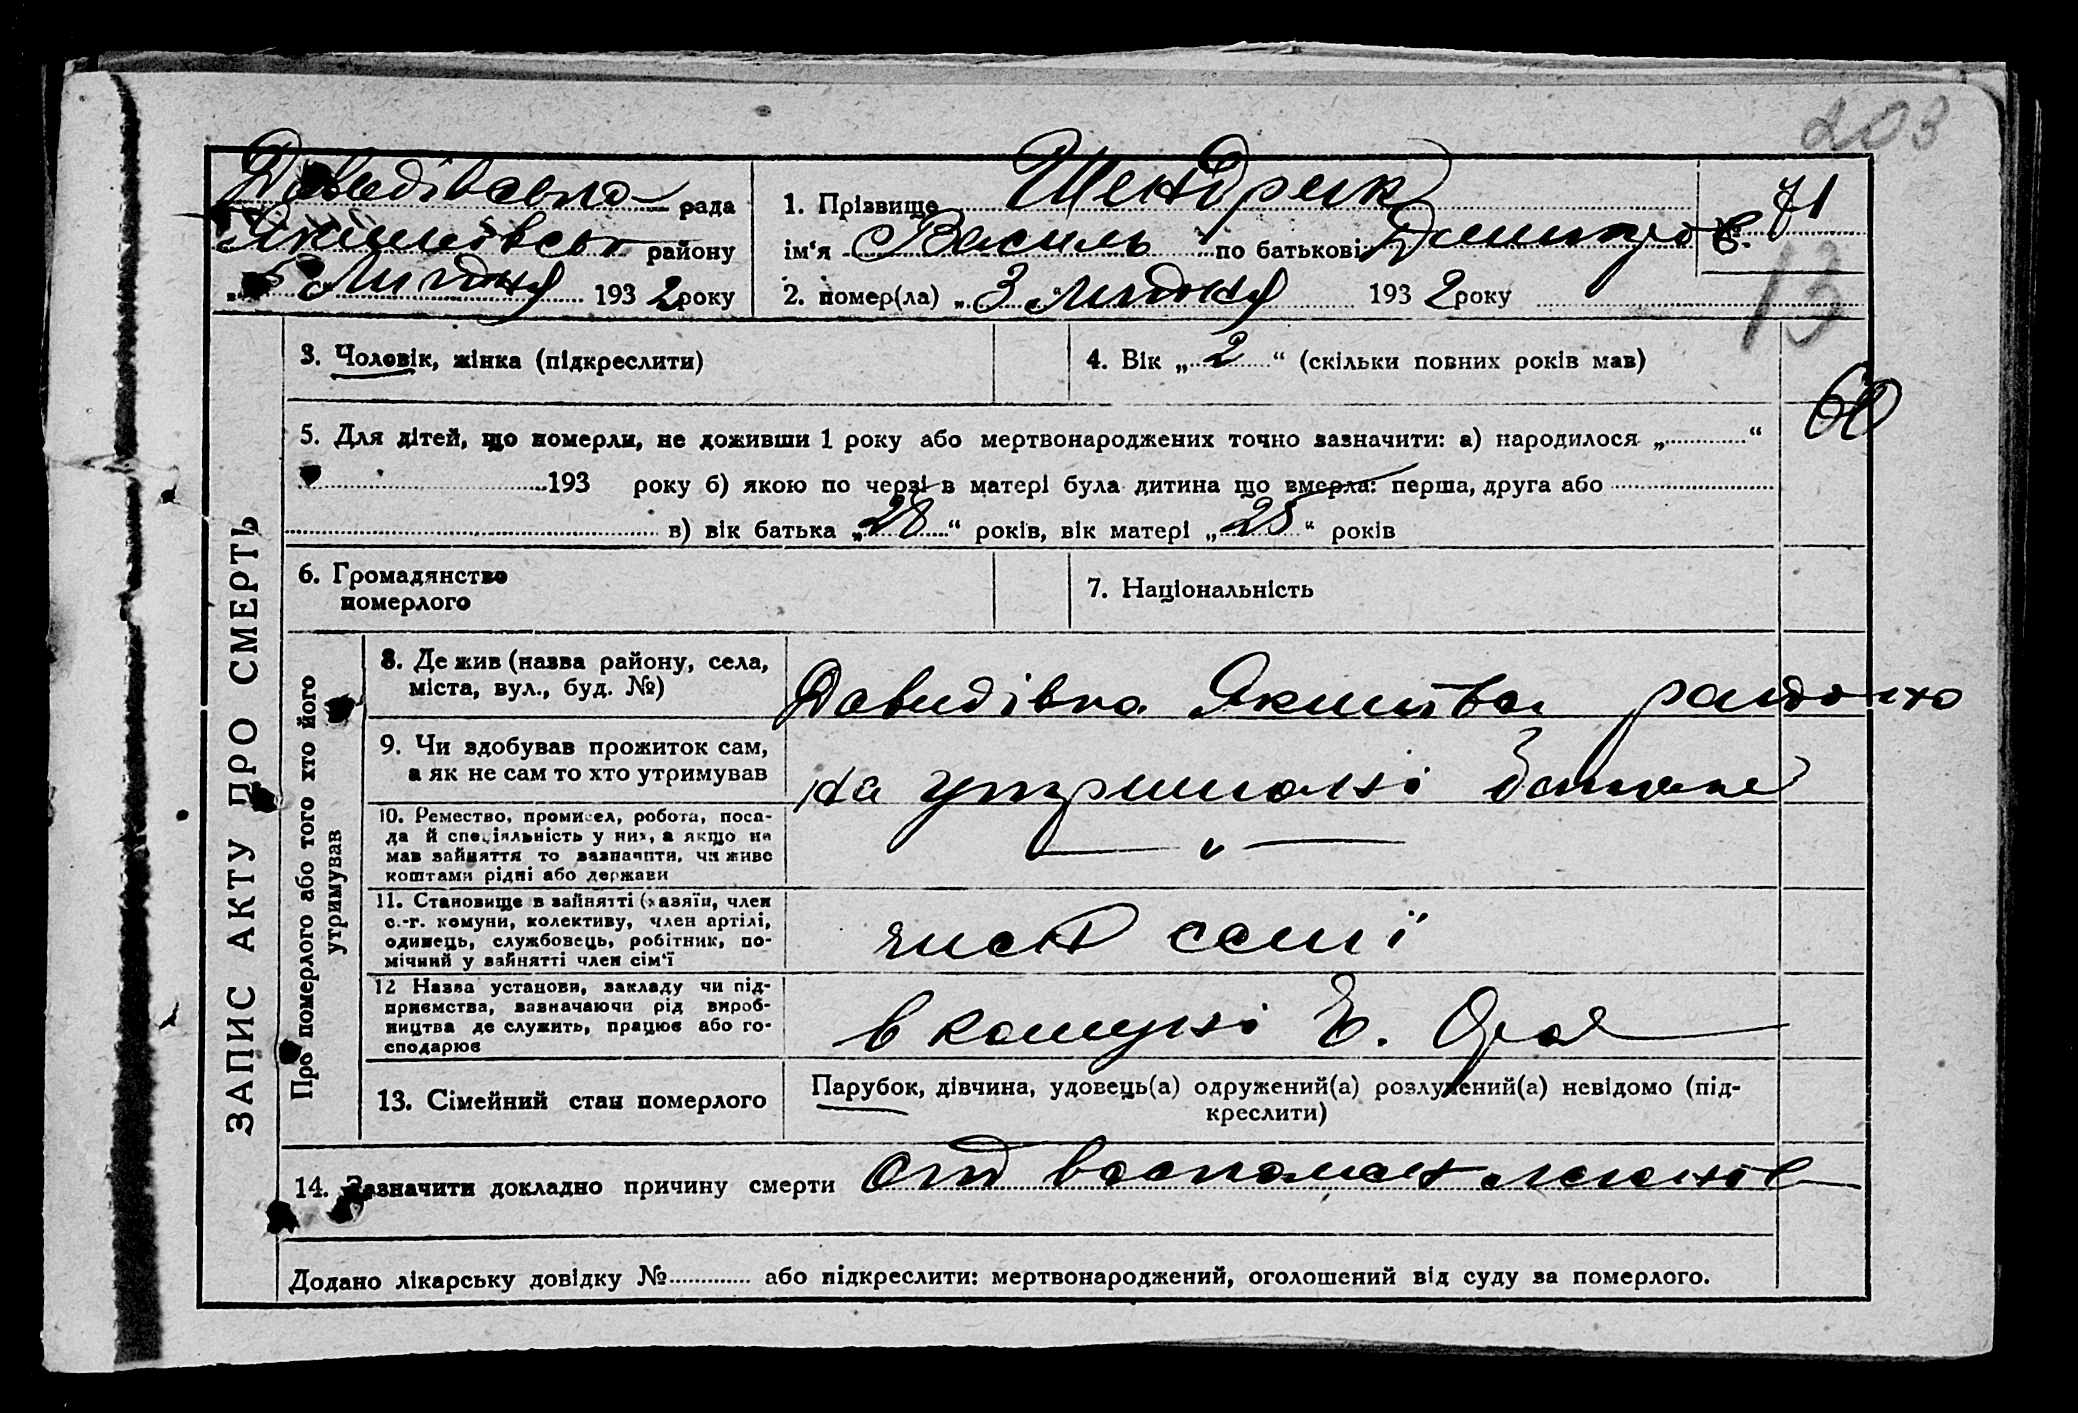 203
Давидівська рада
Якимівськ району
Липдня 1932 року
1. Прізвище
ім'я Василь по батькові Дмитров.
2. помер(ла) „3 Липдня 1932 року
№ 71
13
ЗАПИС АКТУ ПРО СМЕРТЬ
3. Чоловік, жінка (підкреслити)
4. Вік „2“ (скільки повних років мав)
60
5. Для дітей, що померли, не доживши 1 року або мертвонароджених точно зазначити: а) народилося „ “
193 року б) якою по черзі в матері була дитина що вмерла: перша, друга або
в) вік батька „28“ років, вік матері „25“ років
6. Громадянство
померлого
7. Національність
Про померлого або того хто його
утримував
8. Де жив (назва району, села,
міста, вул., буд. №)
Давидівка Якимівск району
9. Чи здобував прожиток сам,
а як не сам то хто утримував
на утриманні батька
10. Ремество, промисел, робота, поса-
да й спеціяльність у них, а якщо не
мав зайняття то зазначити, чи живе
коштами рідні або держави
— " —
11. Становище в зайнятті (хазяїн, член
с.-г. комуни, колективу, член артілі,
одинець, службовець, робітник, по-
мічний у зайнятті член сім'ї
член семї
12 Назва установи, закладу чи під-
приємства, зазначаючи рід вироб-
ництва де служить, працює або го-
сподарює
в комуні
13. Сімейний стан померлого
Парубок, дівчина, удовець(а) одружений(а) розлучений(а) невідомо (під-
креслити)
14. Зазначити докладно причину смерти от воспален легких
Додано лікарську довідку № або підкреслити: мертвонароджений, оголошений від суду за померлого.